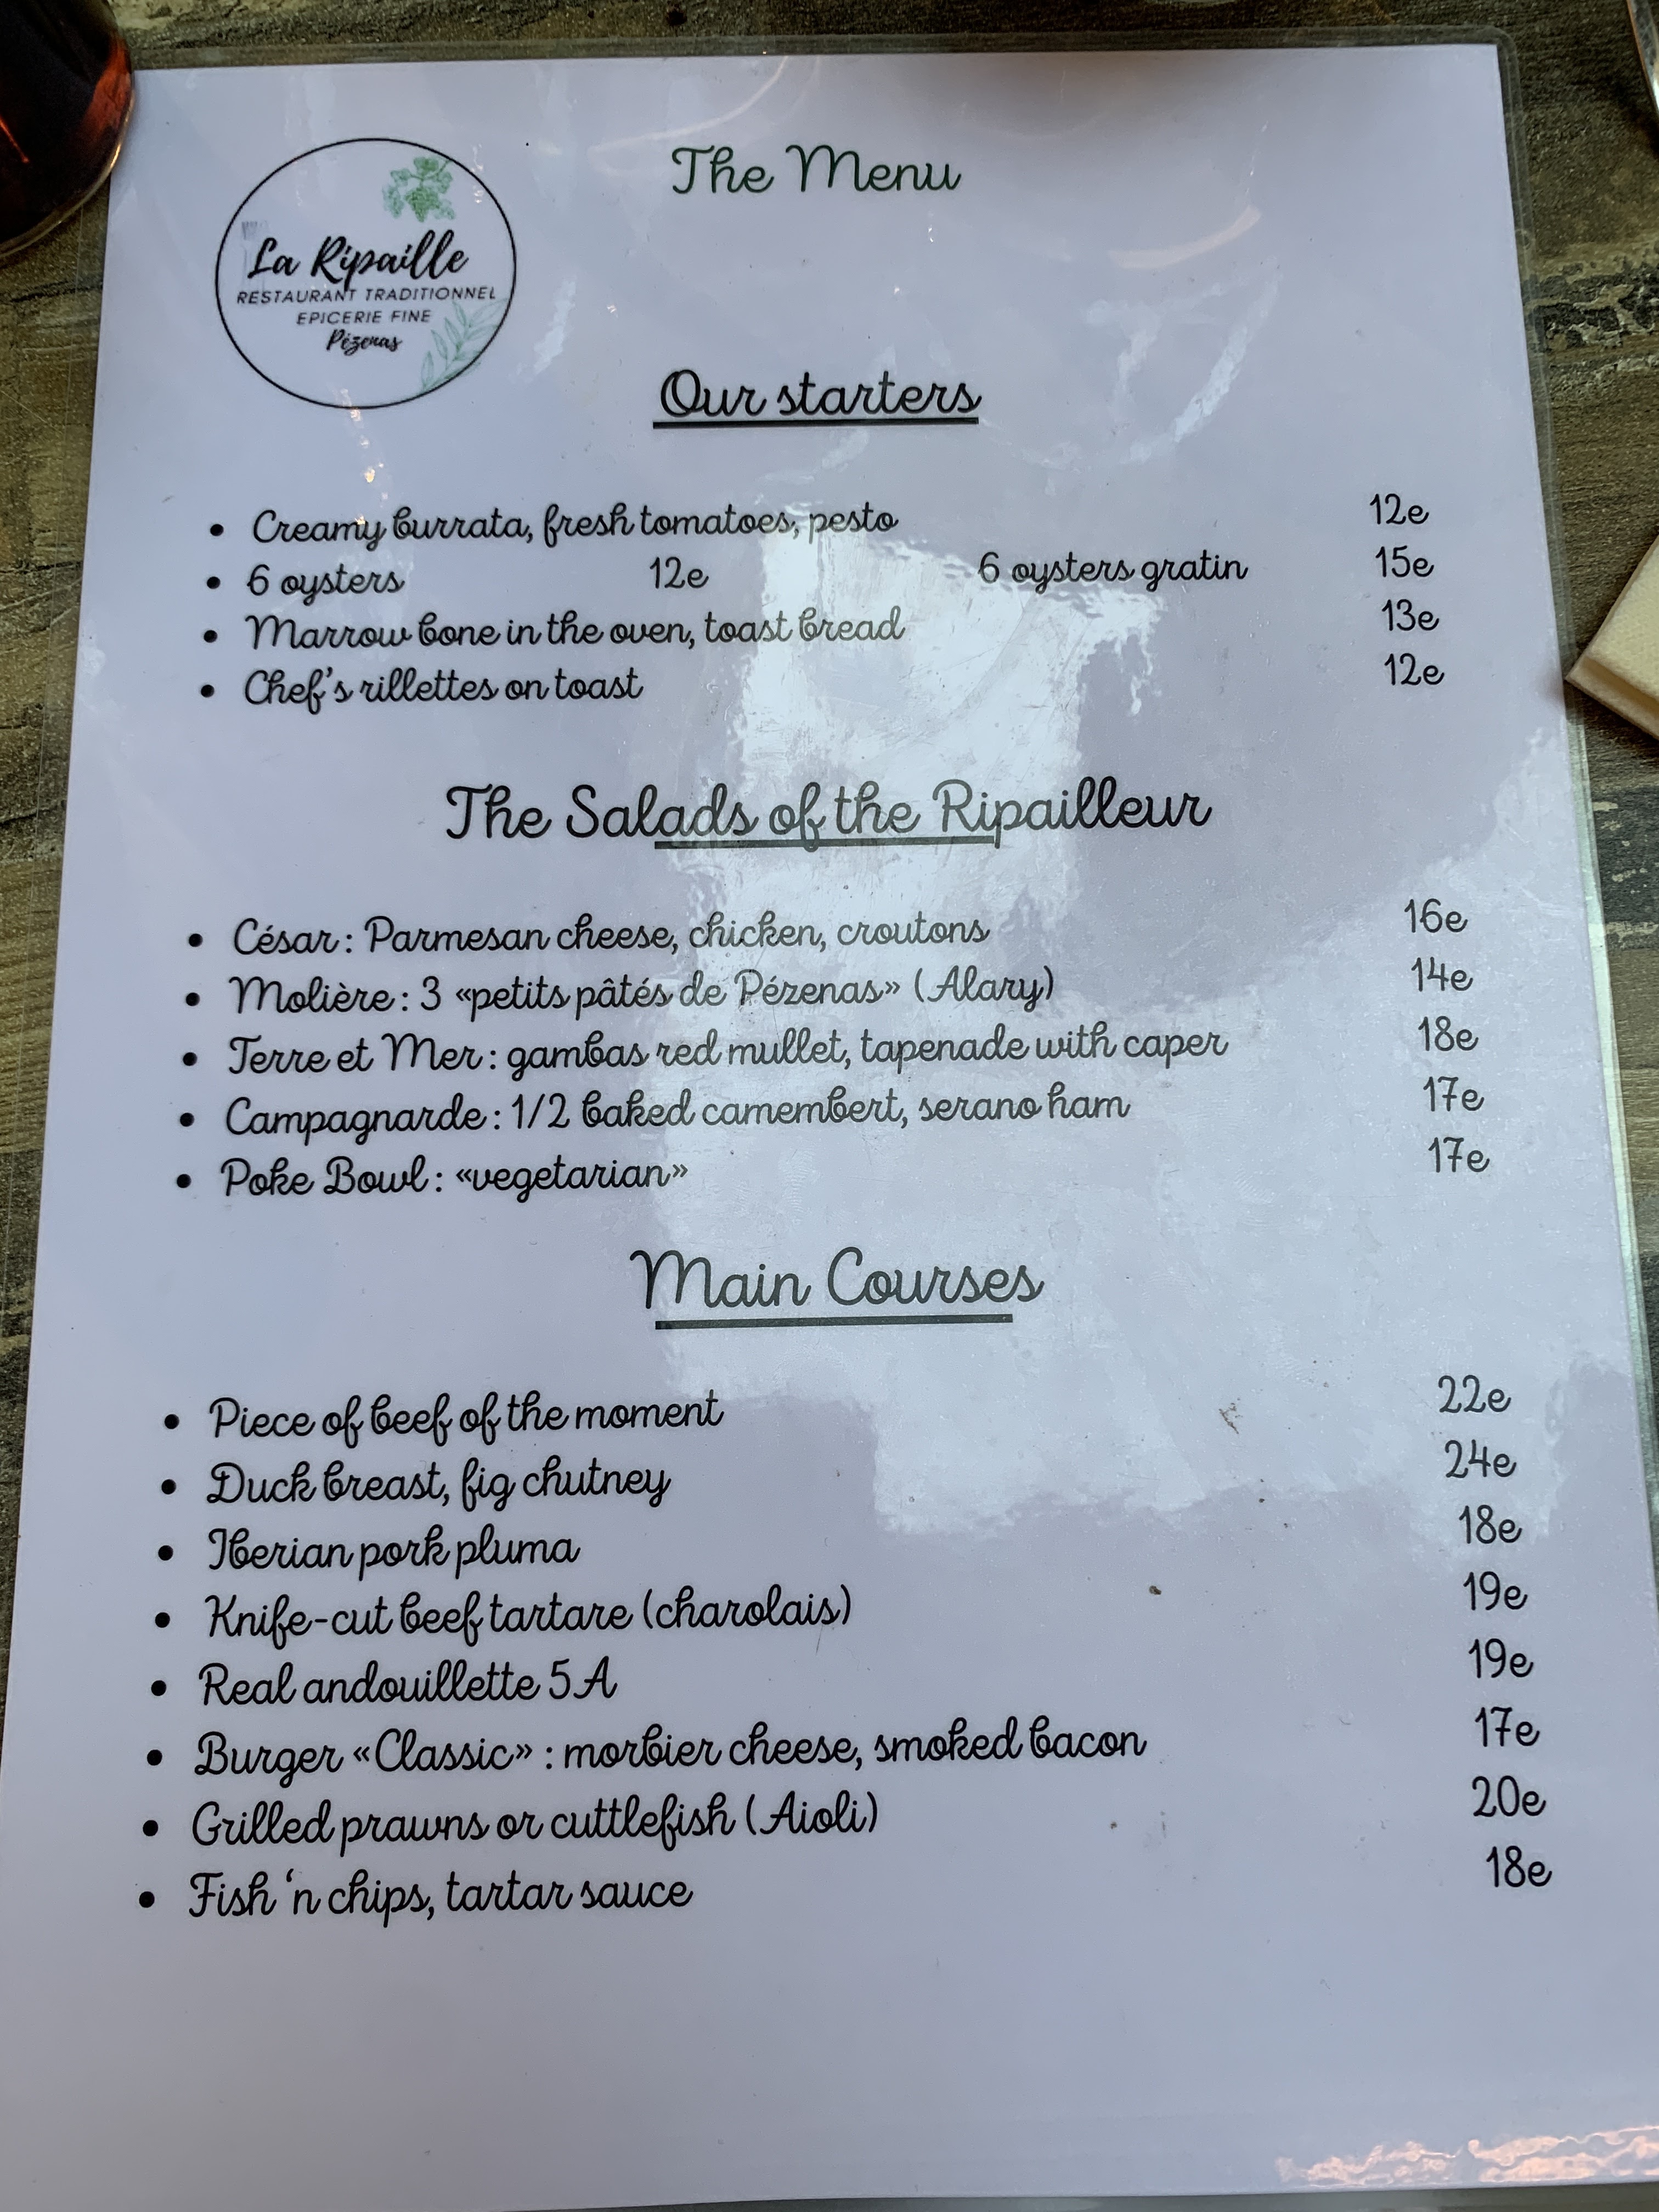 The Menu
La Ripaille
RESTAURANT TRADITIONNEL
EPICERIE FINE
Pézenas
Our starters
• Creamy burrata, fresh tomatoes, pesto 12e
• 6 oysters 12e 6 oysters gratin 15e
• Marrow bone in the oven, toast bread 13e
• Chef's rillettes on toast 12e
The Salads of the Ripailleur
• César : Parmesan cheese, chicken, croutons 16e
• Molière : 3 «petits pâtés de Pézenas» (Alary) 14e
• Terre et Mer : gambas red mullet, tapenade with caper 18e
• Campagnarde : 1/2 baked camembert, serano ham 17e
• Poke Bowl : «vegetarian» 17e
Main Courses
• Piece of beef of the moment 22e
• Duck breast, fig chutney 24e
• Iberian pork pluma 18e
• Knife-cut beef tartare (charolais) 19e
• Real andouillette 5A 19e
• Burger «Classic» : morbier cheese, smoked bacon 17e
• Grilled prawns or cuttlefish (Aioli) 20e
• Fish 'n chips, tartar sauce 18e